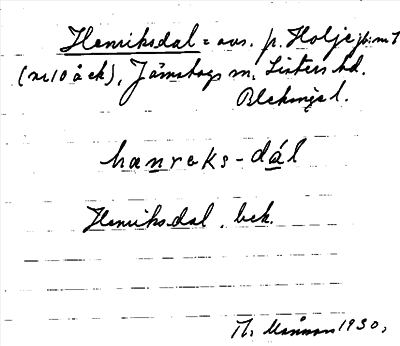 Henriksdal = avs. p. Holje
(nr 10 å ek), Jämshögs sn. Listers hd.
Blekinge l.
hænreks-dál
Henriksdal, bek.
Th. 1930.